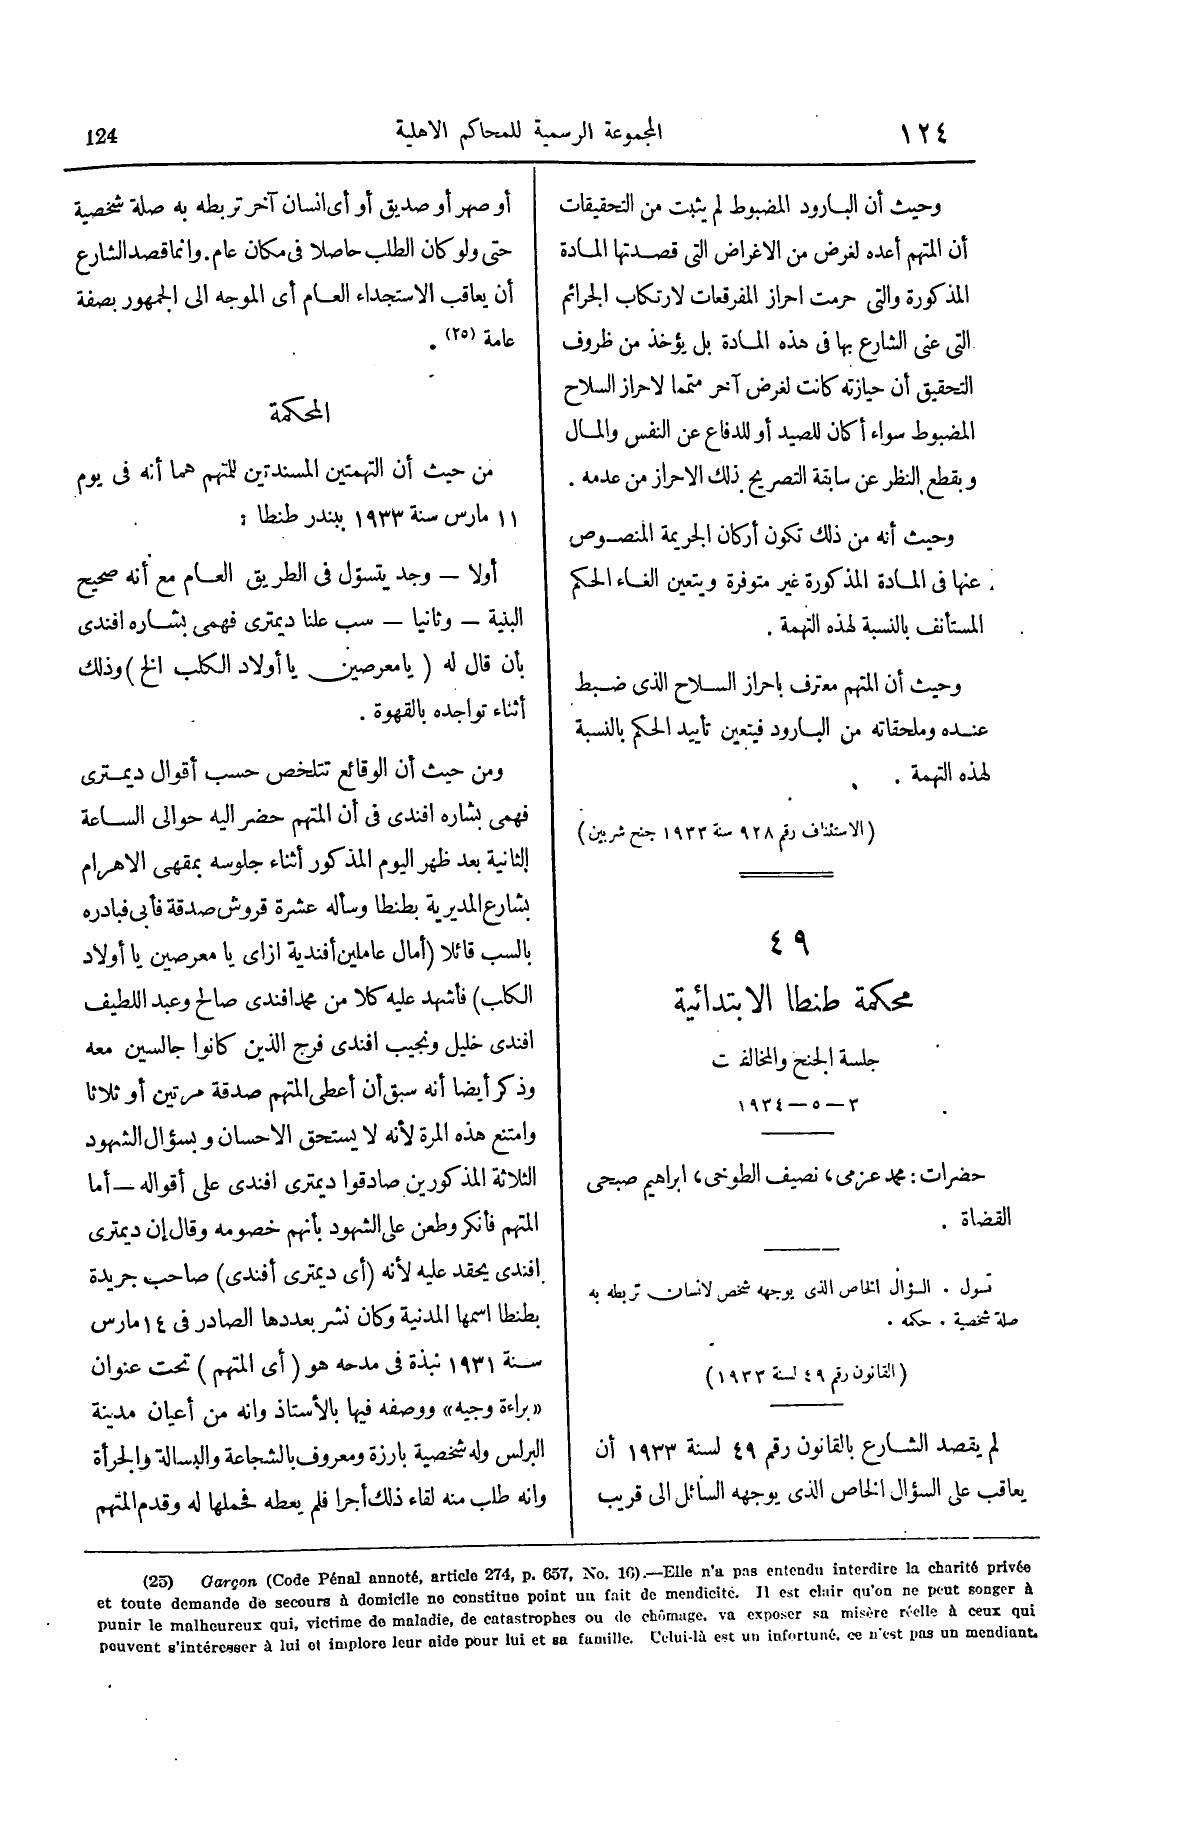 ١٢٤
المجموعة الرسمية للمحاكم الاهلية
124
وحيث أن البارود المضبوط لم يثبت من التحقيقات
أن المتهم أعده لغرض من الاغراض التى قصدتها المادة
المذكورة والتى حرمت احراز المفرقعات لارتكاب الجرائم
التى عنى الشارع بها فى هذه المادة بل يؤخذ من ظروف
التحقيق أن حيازته كانت لغرض آخر متمما لاحراز السلاح
المضبوط سواء أكان للصيد أو للدفاع عن النفس والمال
وبقطع النظر عن سابقة التصريح بذلك الاحراز من عدمه .
وحيث أنه من ذلك تكون أركان الجريمة المنصوص
عنها فى المادة المذكورة غير متوفرة ويتعين الغاء الحكم
المستأنف بالنسبة لهذه التهمة .
وحيث أن المتهم معترف باحراز السلاح الذى ضبط
عنده وملحقاته من البارود فيتعين تأييد الحكم بالنسبة
لهذه التهمة .
(الاستئناف رقم ٩٢٨ سنة ١٩٣٣ جنح شربين)
٤٩
محكمة طنطا الابتدائية
جلسة الجنح والمخالفات
٣ — ٥ — ١٩٣٤
حضرات : محمد عزمى، نصيف الطوخى، ابراهيم صبحى
القضاة .
تسول . السؤال الخاص الذى يوجهه شخص لانسان تربطه به
صلة شخصية . حكمه .
(القانون رقم ٤٩ لسنة ١٩٣٣)
لم يقصد الشارع بالقانون رقم ٤٩ لسنة ١٩٣٣ أن
يعاقب على السؤال الخاص الذى يوجهه السائل الى قريب
أو صهر أو صديق أو أى انسان آخر تربطه به صلة شخصية
حتى ولو كان الطلب حاصلا فى مكان عام. وانما قصد الشارع
أن يعاقب الاستجداء العام أى الموجه الى الجمهور بصفة
عامة (٢٥) .
المحكمة
من حيث أن التهمتين المسندتين للمتهم هما أنه فى يوم
١١ مارس سنة ١٩٣٣ ببندر طنطا :
أولا — وجد يتسوّل فى الطريق العام مع أنه صحيح
البنية — وثانيا — سب علنا ديمترى فهمى بشاره افندى
بأن قال له ( يا معرصين يا أولاد الكلب الخ ) وذلك
أثناء تواجده بالقهوة .
ومن حيث أن الوقائع تتلخص حسب أقوال ديمترى
فهمى بشاره افندى فى أن المتهم حضر اليه حوالى الساعة
الثانية بعد ظهر اليوم المذكور أثناء جلوسه بمقهى الاهرام
بشارع المديرية بطنطا وسأله عشرة قروش صدقة فأبى فبادره
بالسب قائلا (أمال عاملين أفندية ازاى يا معرصين يا أولاد
الكلاب) فأشهد عليه كلا من محمد افندى صالح وعبد اللطيف
افندى خليل ونجيب افندى فرج الذين كانوا جالسين معه
وذكر أيضا أنه سبق أن أعطى المتهم صدقة مرتين أو ثلاثا
وامتنع هذه المرة لأنه لا يستحق الاحسان وبسؤال الشهود
الثلاثة المذكورين صادقوا ديمترى افندى على أقواله — أما
المتهم فأنكر وطعن على الشهود بأنهم خصومه وقال إن ديمترى
افندى يحقد عليه لأنه (أى ديمترى أفندى) صاحب جريدة
بطنطا اسمها المدنية وكان نشر بعددها الصادر فى ١٤ مارس
سنة ١٩٣١ نبذة فى مدحه هو ( أى المتهم ) تحت عنوان
«براءة وجيه» ووصفه فيها بالأستاذ وانه من أعيان مدينة
البرلس وله شخصية بارزة ومعروف بالشجاعة والبسالة والجرأة
وانه طلب منه لقاء ذلك أجرا فلم يعطه فحملها له وقدم المتهم
(25) Garçon (Code Pénal annoté, article 274, p. 657, No. 16).—Elle n'a pas entendu interdire la charité privée
et toute demande de secours à domicile ne constitue point un fait de mendicité. Il est clair qu'on ne peut songer à
punir le malheureux qui, victime de maladie, de catastrophes ou de chômage, va exposer sa misère réelle à ceux qui
peuvent s'intéresser à lui et implore leur aide pour lui et sa famille. Celui-là est un infortuné, ce n'est pas un mendiant.